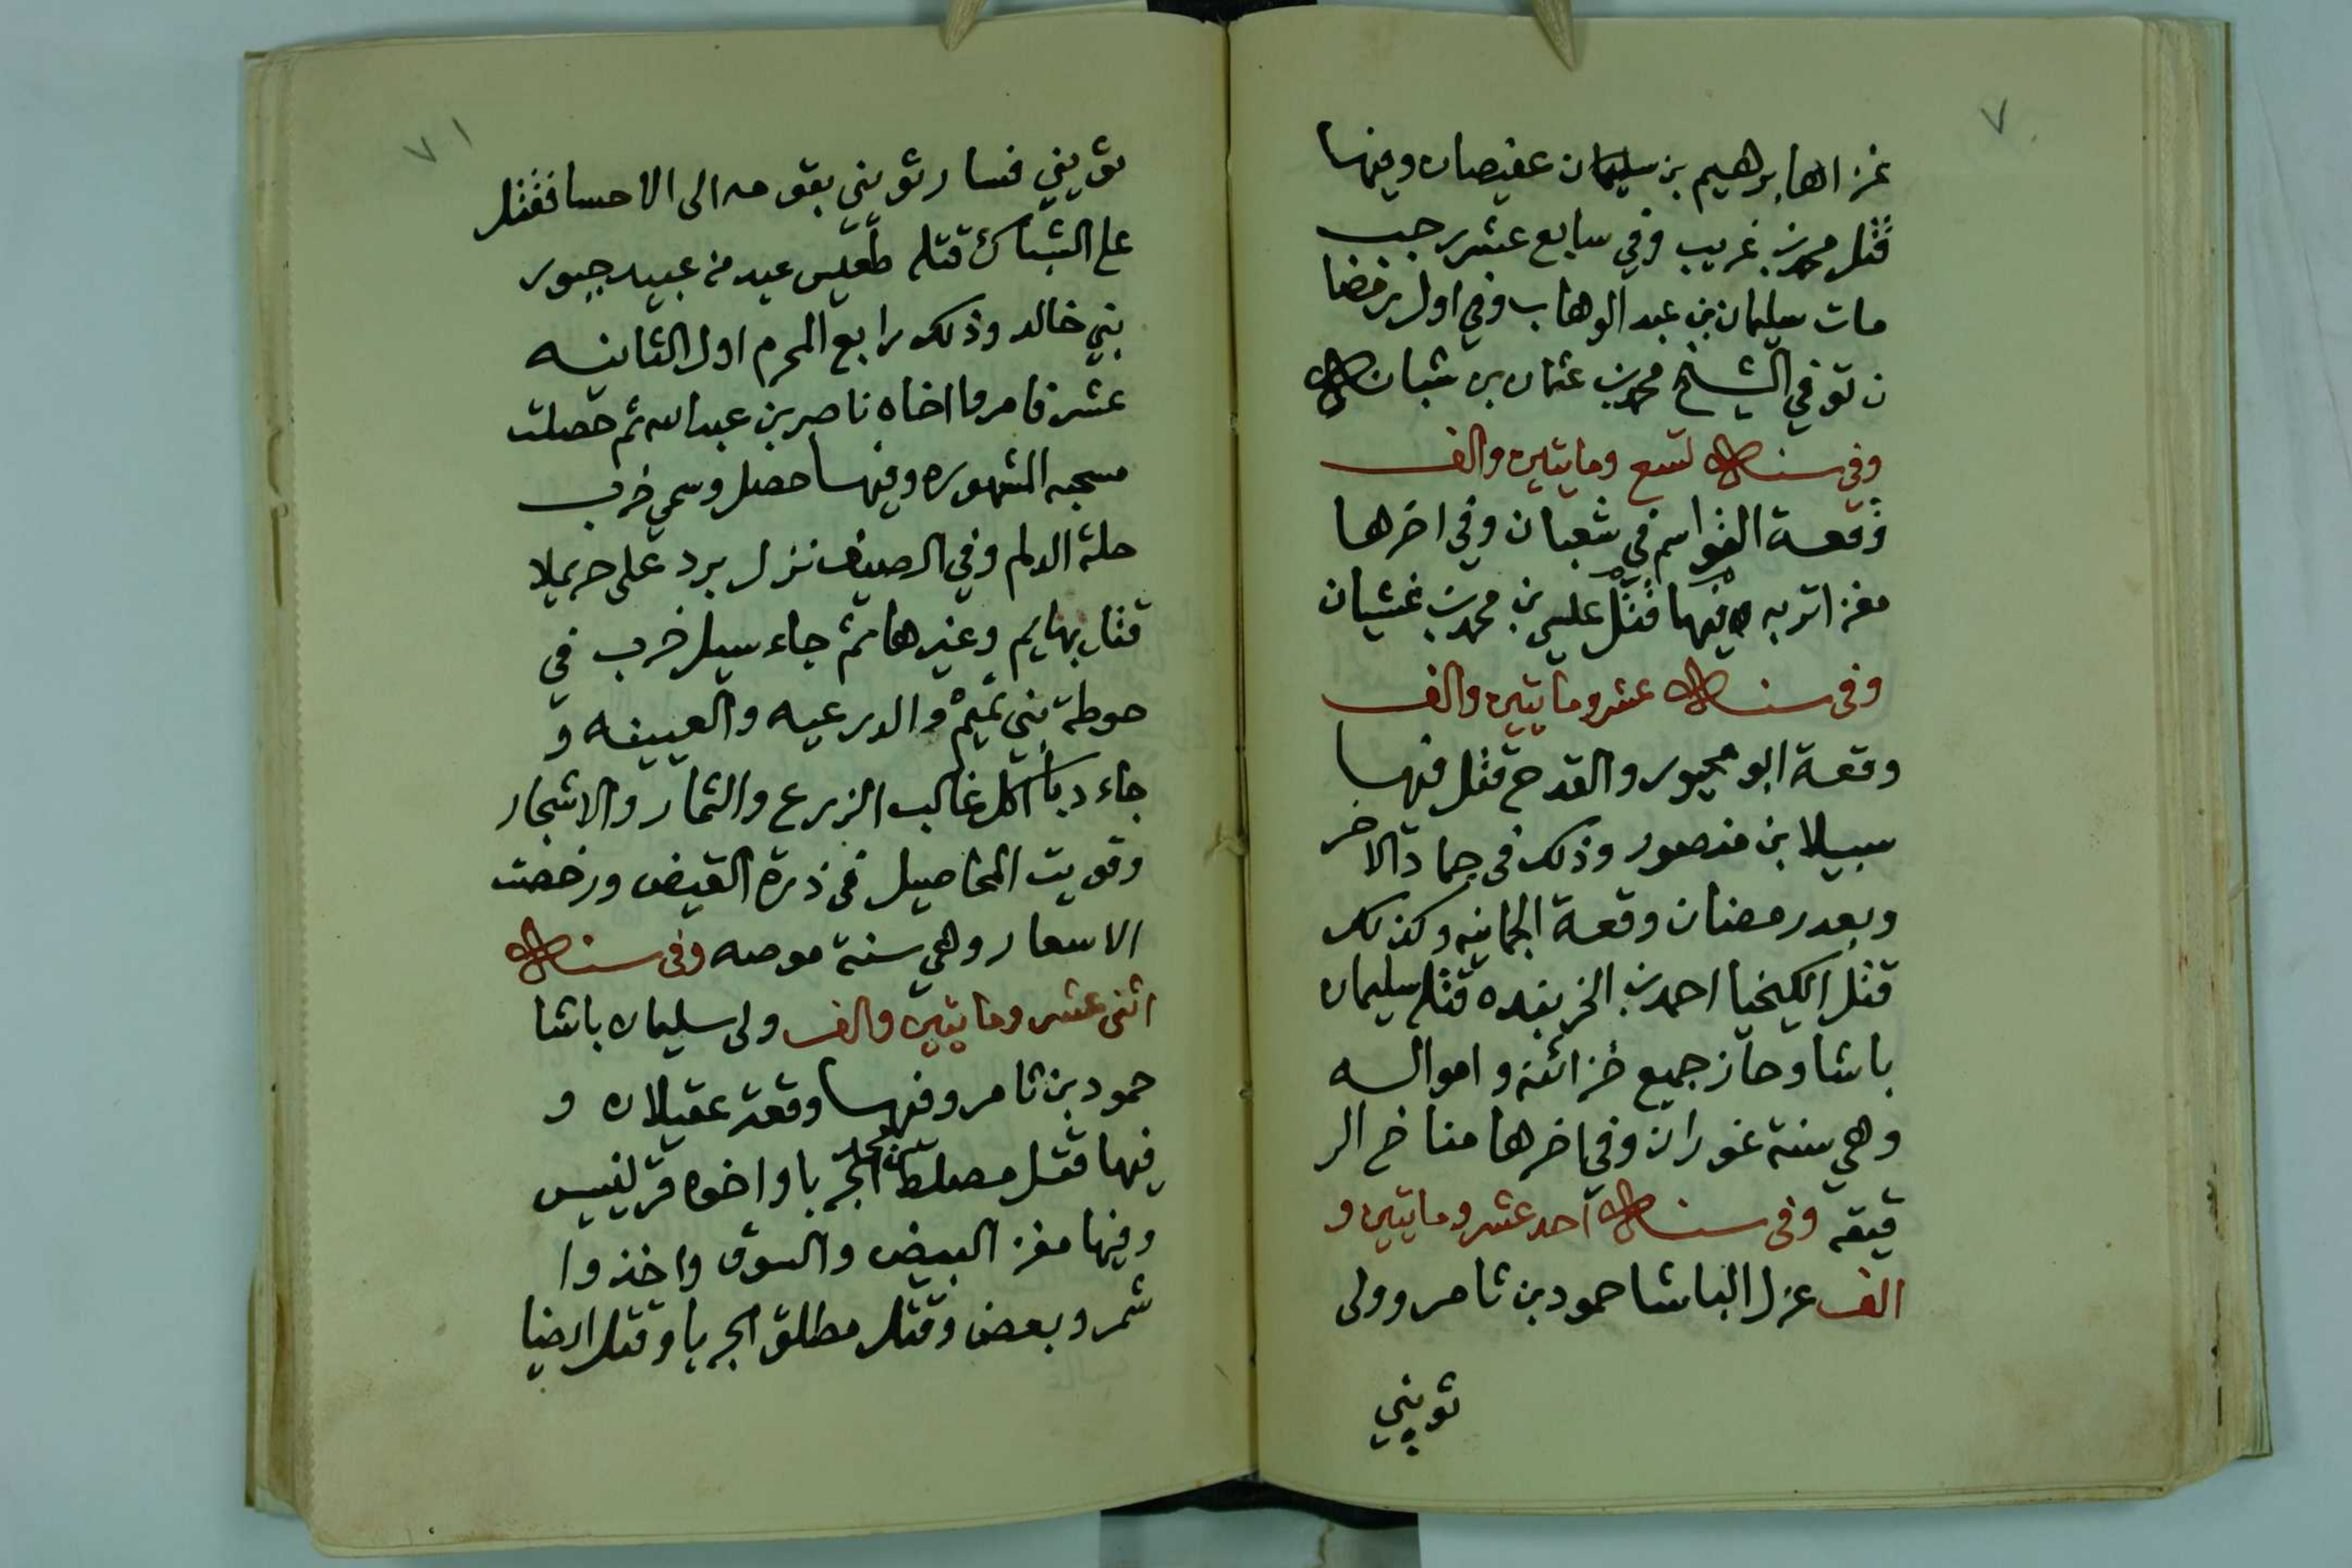 ٧٠
غزاها ابرهيم بن سليمان عفيصان وفيها
قتل محمد بن غريب وفي سابع عشر رجب
مات سليمان بن عبد الوهاب وفي اول رمضا
ن توفي الشيخ محمد بن عثمان بن شبانه
وفي سنة تسع ومايتين والف
وقعة القواسم في شعبان وفي اخرها
مغزا تربه وفيها قتل علي بن محمد بن غشيان
وفي سنة عشر ومايتين والف
وقعة ابو محيور والقدح قتل فيها
سبيلا بن منصور وذلك في جماد الاخر
وبعد رمضان وقعة الجمانيه وكذلك
قتل الكيخيا احمد بن الخربنده قتله سليمان
باشا وحاز جميع خزائنه وامواله
وهي سنة غوران وفي اخرها مناخ الر
قيقه وفي سنة احد عشر ومايتين و
الف عزل الباشا حمود بن ثامر وولى
ثويني
٧١
ثويني فسار ثويني بقومه الى الاحسا فقتل
على الشباك قتله طعيس عبد من عبيد جبور
بني خالد وذلك رابع المحرم اول الثانيه
عشر فامروا اخاه ناصر بن عبد الله ثم حصلت
سحبه المشهوره وفيها حصل وسمي خرب
حلة الدلم وفي الصيف نزل برد على حريملا
قتل بهايم وغيرها ثم جاء سيل خرب في
حوطة بني تميم والدرعيه والعيينه و
جاء دبا اكل غالب الزرع والثمار والاشجار
وقويت المحاصيل في ذرة القيض ورخصت
الاسعار وهي سنة موصه وفي سنة
اثنى عشر ومايتين والف ولى سليمان باشا
حمود بن ثامر وفيها وقعة عقيلان و
فيها قتل مصلط الجربا واخوه قرينيس
وفيها مغز البيض والسوق واخذوا
شمر وبعض وقتل مطلق الجربا وقتل ايضا